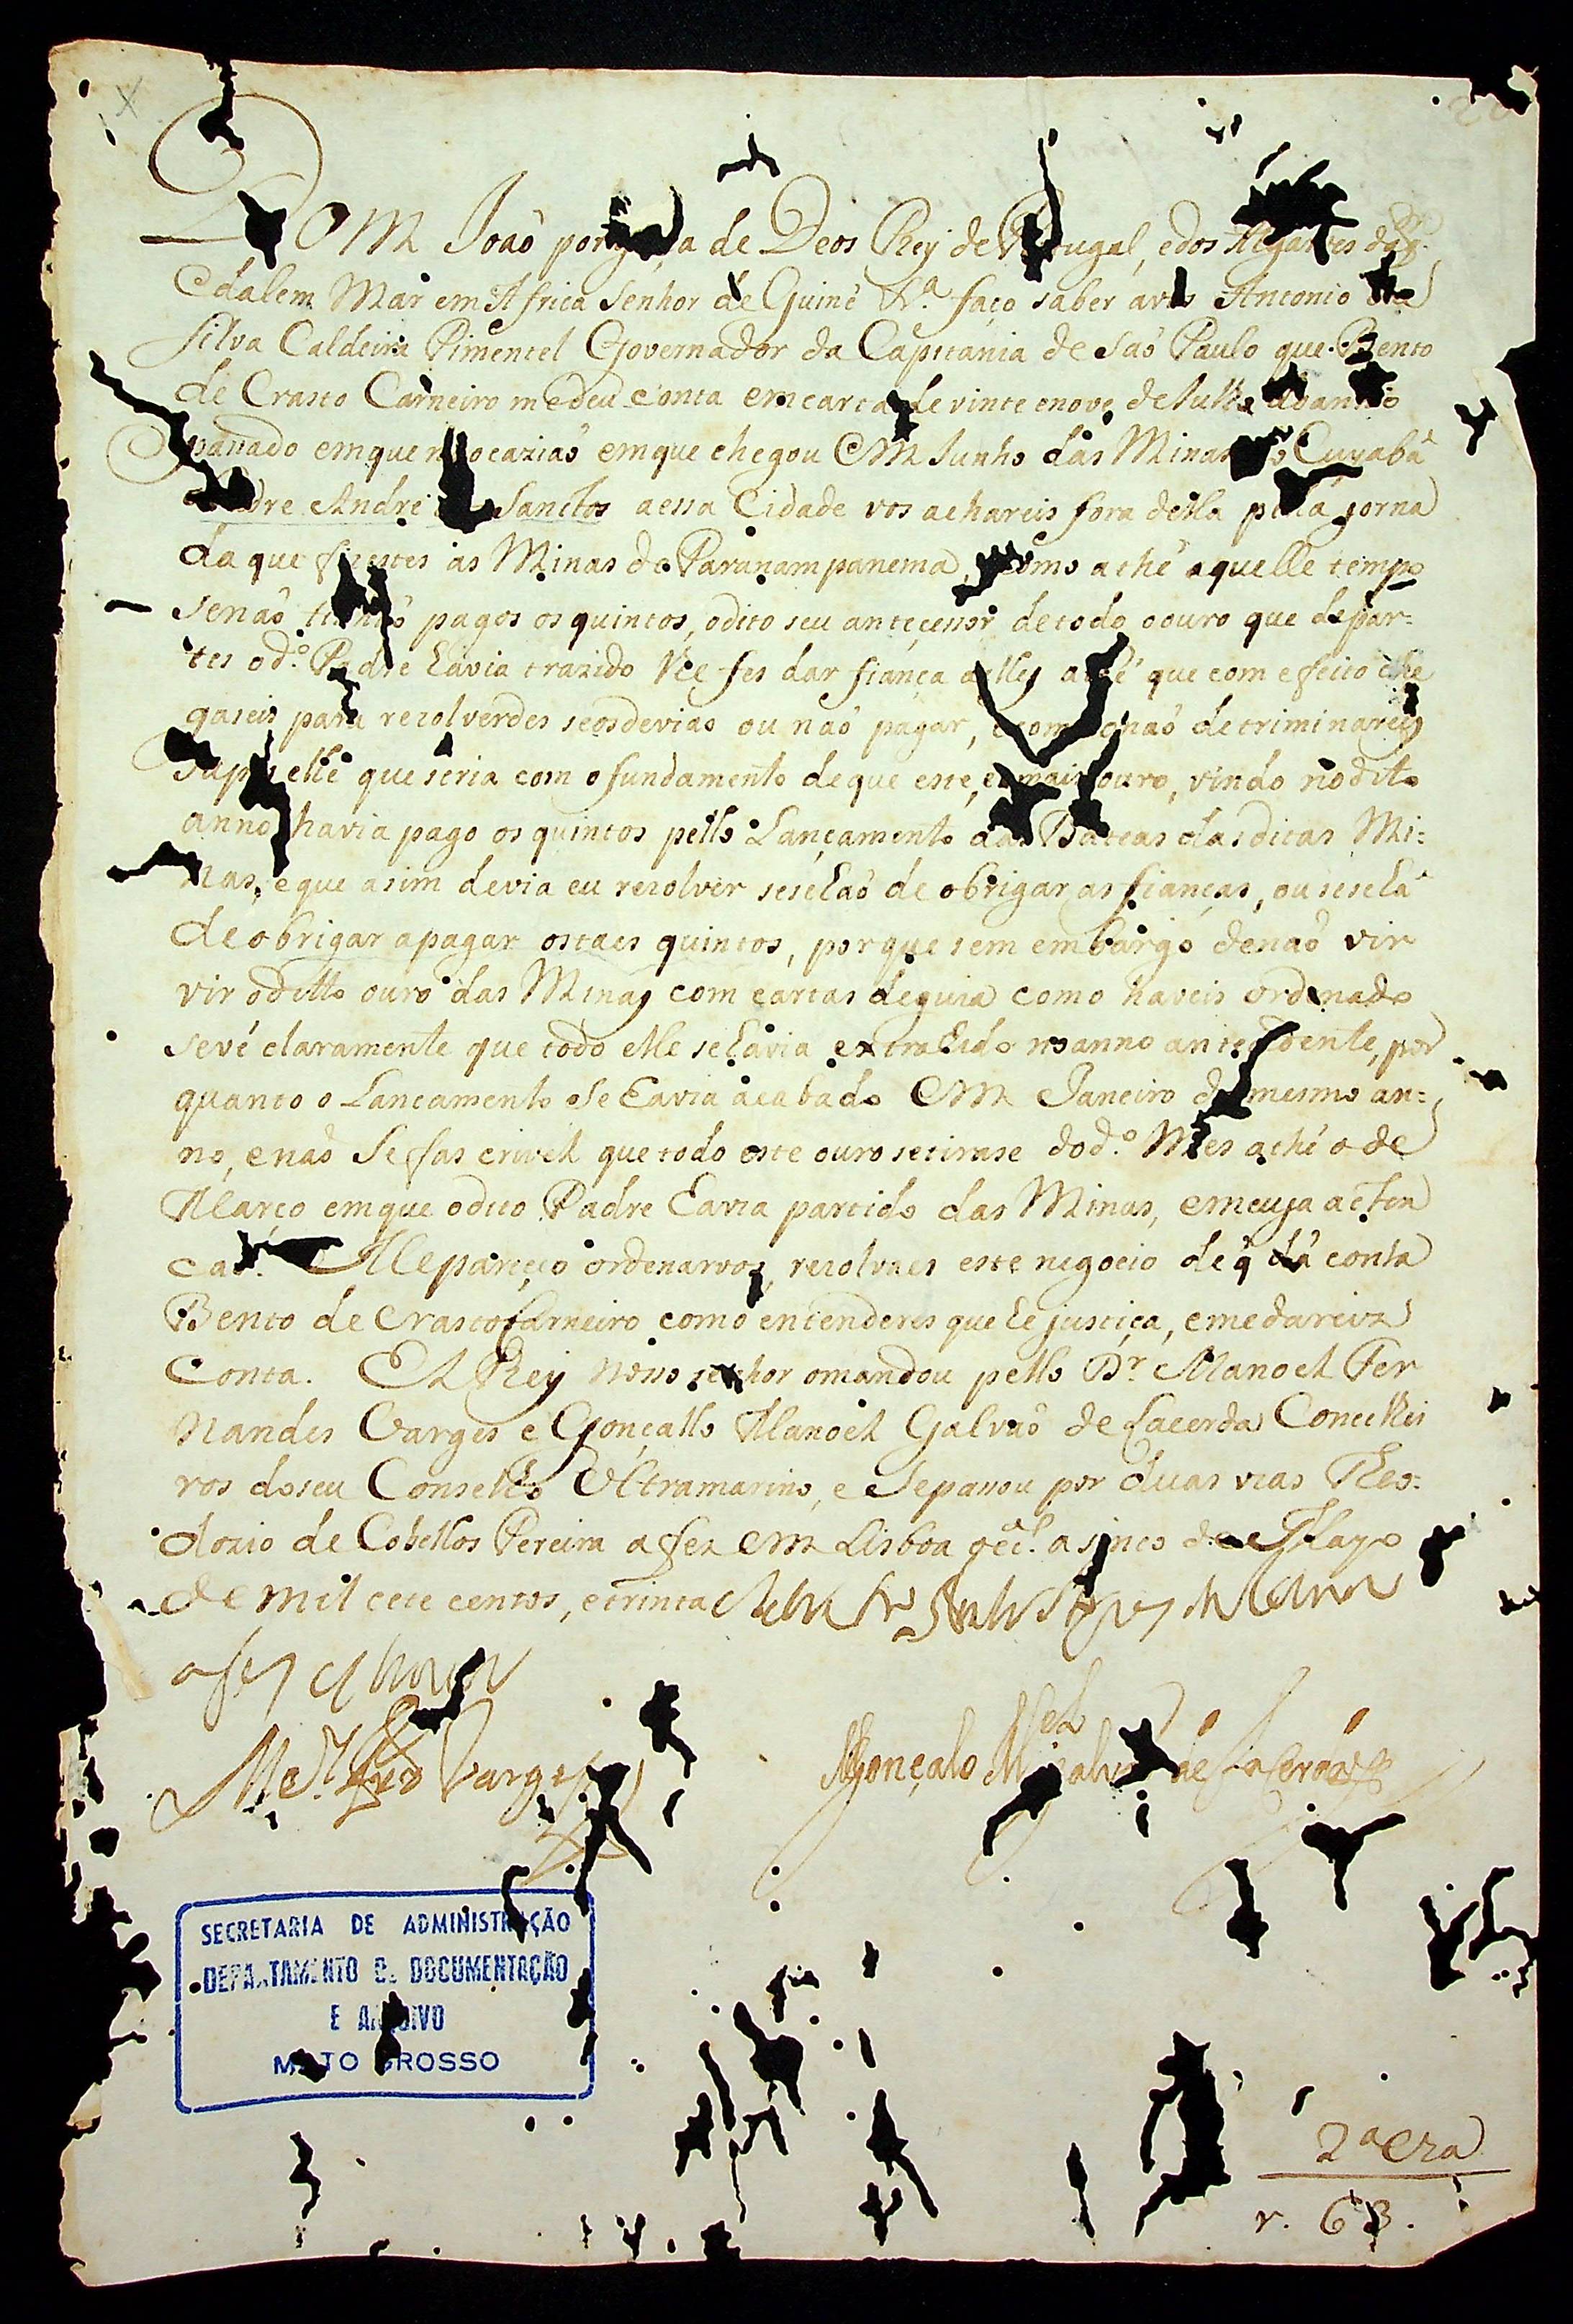 Dom Joaõ por a de Deos Rey de Portugal, edos Algarves daq.
Edalem Mar em Africa Senhor de Guinè &.ª faço saber avós Antonio da
Silva Caldeira Pimentel Governador da Capitania de Saõ Paulo que Bento
de Crasto Carneiro medeu conta emcarta devinte enove deJulho doanno
panado emque n ocaziaõ emque chegou Em Junho das Minas Cuyabâ
dre Andre Sanctos aessa Cidade vos achareis fora della pella jorna
da que fizestes às Minas do Paranampanema, como athè aquelle tempo
senaõ pagos os quintos, odito seu antecessor detodo oouro que depar=
tes od.º Padre havia trazido lhe fes dar fiança aelles athé que com efeito che
gaseis para rezolverdes seosdeviaõ ou naõ pagar, naõ detriminareis
elle que seria com ofundamento deque este, emais ouro, vindo nodito
anno havia pago os quintos pello Lançamento das Bateas dasditas Mi=
nas, eque asim devia eu rezolver sesehaõ de obrigar as fianças, ou seseha
deobrigar apagar ostaes quintos, porque sem embargo denaõ vir
vir oditto ouro das Minas com cartas deguia como haveis ordenado
sevé claramente que todo elle sehavia extrahido noanno antecedente, por
quanto o Lancamento se havia acabado Em Janeiro do mesmo an=
no, enaõ Sefas crivel que todo este ouro setirase dod.º Mes athé o de
Março emque odito Padre havia partido das Minas, emcuja aten
caõ. Mepareçeo ordenarvos, rezolvaes este negocio deq̃ dá conta
Bento de CrastoCarneiro como entenderes que hé justiça, emedareis
Conta. El Rey nosso senhor omandou pello Dr. Manoel Fer
nandes Varges e Gonçallo Manoel Galvaõ de Lacerda Concelhei
ros doseu Conselho Ultramarino, e Sepassou por duas vias Theo=
dozio de Cobellos Pereira afez em Lisboa a sinco de Mayo
de mil cete centos, etrinta
Me.l Frz Varges
Gonçalo M.el Galvaõ de Lacerda
SECRETARIA DE ADMINISTRAÇÃO
DEPARTAMENTO DE DOCUMENTAÇÃO
E ARQUIVO
MATO GROSSO
2ª
r. 63.